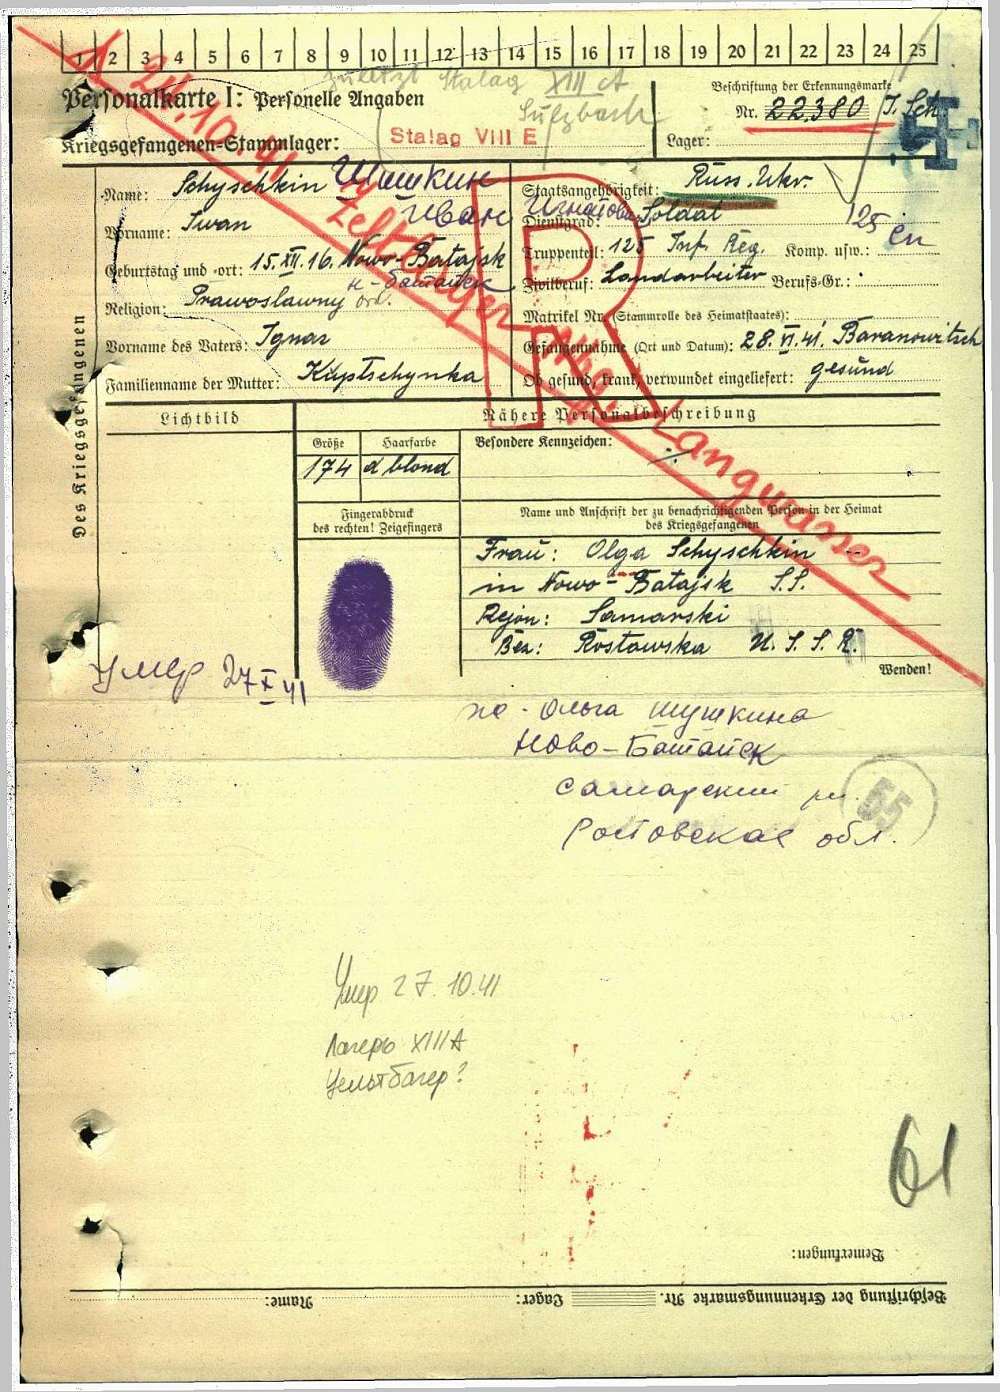 1 2 3 4 5 6 7 8 9 10 11 12 13 14 15 16 17 18 19 20 21 22 23 24 25
zuletzt Stalag XIII A
Sulzbach
Personalkarte I: Personelle Angaben
Kriegsgefangenen-Stammlager: Stalag VIII E
Beschriftung der Erkennungsmarke
Nr. 22380
Lager:
24.10.41 Zeltlager Nbg. Langwasser
R
Des Kriegsgefangenen
Name: Schyschkin Шишкин
Vorname: Iwan Иван Игнатов
Geburtstag und -ort: 15.XII.16. Nowo-Batajsk
Н-Батайск
Religion: Prawoslawny
Vorname des Vaters: Ignaz
Familienname der Mutter: Kuptschynka
Staatsangehörigkeit: Russ. Ukr.
Dienstgrad: Soldat
Truppenteil: 125 Inf. Reg. Komp. usw.:
125 сп
Zivilberuf: Landarbeiter Berufs-Gr.:
Matrikel Nr. (Stammrolle des Heimatstaates):
Gefangennahme (Ort und Datum): 28.VI.41. Baranowitsch
Ob gesund, krank, verwundet eingeliefert: gesund
Lichtbild
Nähere Personalbeschreibung
Größe Haarfarbe
174 d blond
Besondere Kennzeichen:
Fingerabdruck
des rechten! Zeigefingers
Name und Anschrift der zu benachrichtigenden Person in der Heimat
des Kriegsgefangenen
Frau: Olga Schyschkin
in Nowo-Batajsk S.S.
Rejon: Samarski
Bez: Rostowska U.S.S.R.
Wenden!
Умер 27 X 41
жо - Ольга Шушкина
Ново-Батайск
Самарский р.
Ростовская обл.
55
Умер 27.10.41
Лагерь XIIIA
Цельтлагер?
61
Bemerkungen:
Beschriftung der Erkennungsmarke Nr. Lager: Name: